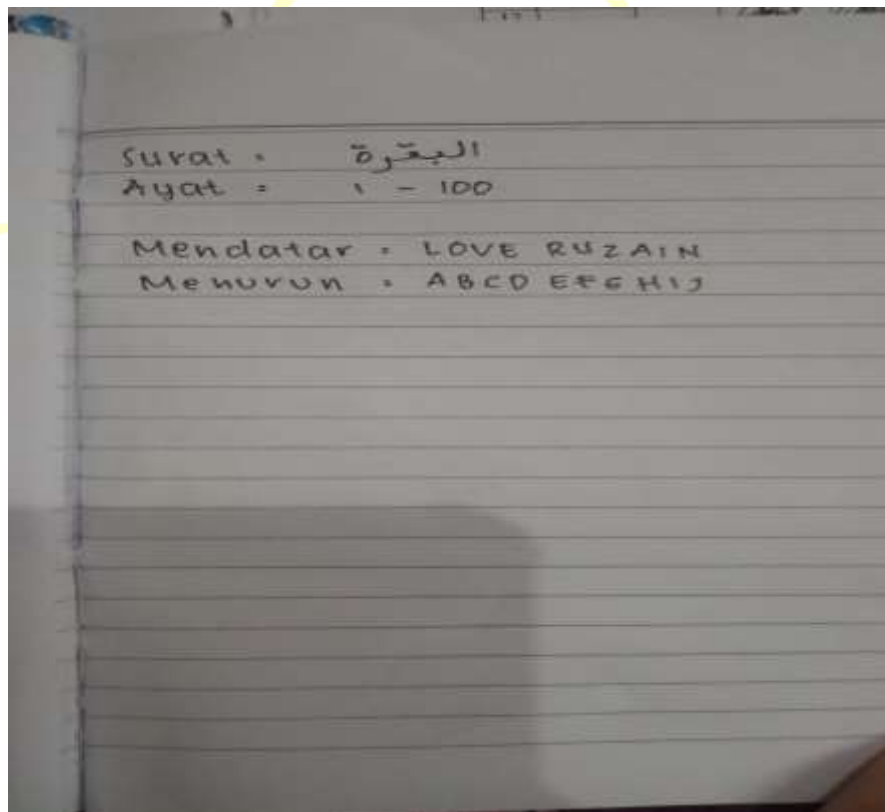 Surat : البقرة
Ayat : ١ - 100
Mendatar : LOVE RUZAIN
Menurun : ABCD EFGHIJ